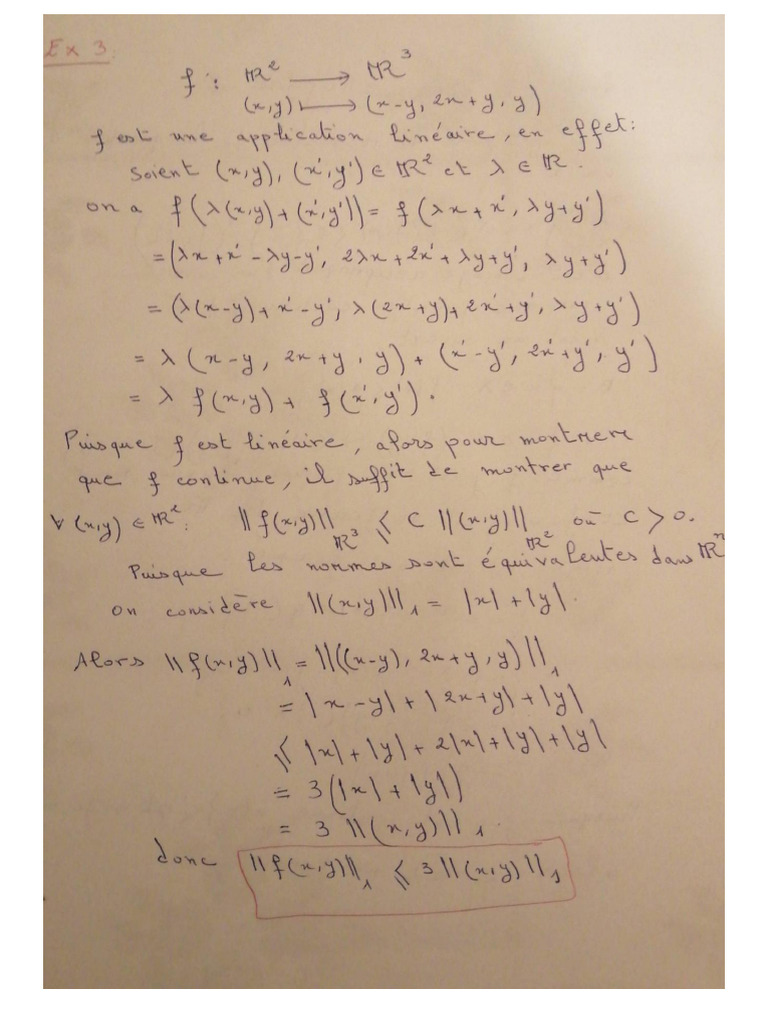 Ex 3:
f : ℝ² ⟶ ℝ³
(x,y) ⟼ (x-y, 2x+y, y)
f est une application linéaire, en effet:
Soient (x,y), (x',y') ∈ ℝ² et λ ∈ ℝ.
on a f(λ(x,y)+(x',y')) = f(λx+x', λy+y')
= (λx+x'-λy-y', 2λx+2x'+λy+y', λy+y')
= (λ(x-y)+x'-y', λ(2x+y)+2x'+y', λy+y')
= λ(x-y, 2x+y, y) + (x'-y', 2x'+y', y')
= λ f(x,y) + f(x',y').
Puisque f est linéaire, alors pour montrer
que f continue, il suffit de montrer que
∀ (x,y) ∈ ℝ²: ||f(x,y)||_ℝ³ ≤ C ||(x,y)||_ℝ² où C > 0.
Puisque les normes sont équivalentes dans ℝⁿ
on considère ||(x,y)||₁ = |x|+|y|.
Alors ||f(x,y)||₁ = ||((x-y), 2x+y, y)||₁
= |x-y| + |2x+y| + |y|
≤ |x|+|y|+2|x|+|y|+|y|
= 3(|x|+|y|)
= 3 ||(x,y)||₁.
donc ||f(x,y)||₁ ≤ 3 ||(x,y)||₁